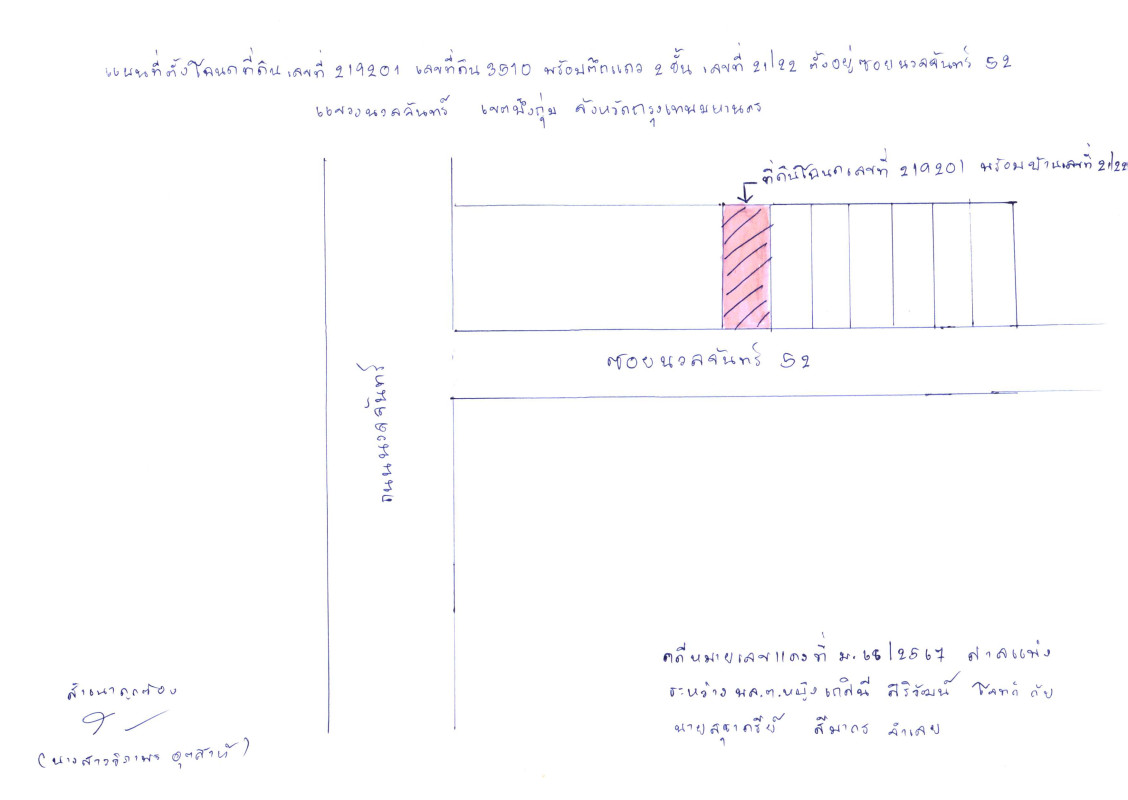 แผนที่ตั้งโฉนดที่ดินเลขที่ 219201 เลขที่ดิน 3510 พร้อมตึกแถว 2 ชั้น เลขที่ 21/22 ตั้งอยู่ซอยนวลจันทร์ 52
แขวงนวลจันทร์ เขตบึงกุ่ม จังหวัดกรุงเทพมหานคร
ที่ดินโฉนดเลขที่ 219201 พร้อมบ้านเลขที่ 21/22
ซอยนวลจันทร์ 52
ถนนนวลจันทร์
คดีหมายเลขแดงที่ ม. /2567 ศาลแพ่ง
ระหว่าง พล.ต.หญิง เกสินี สิริวัฒน์ โจทก์ กับ
นาย สีมากร จำเลย
สำเนาถูกต้อง
(นางสาวธิภาพร อุตสาห์)